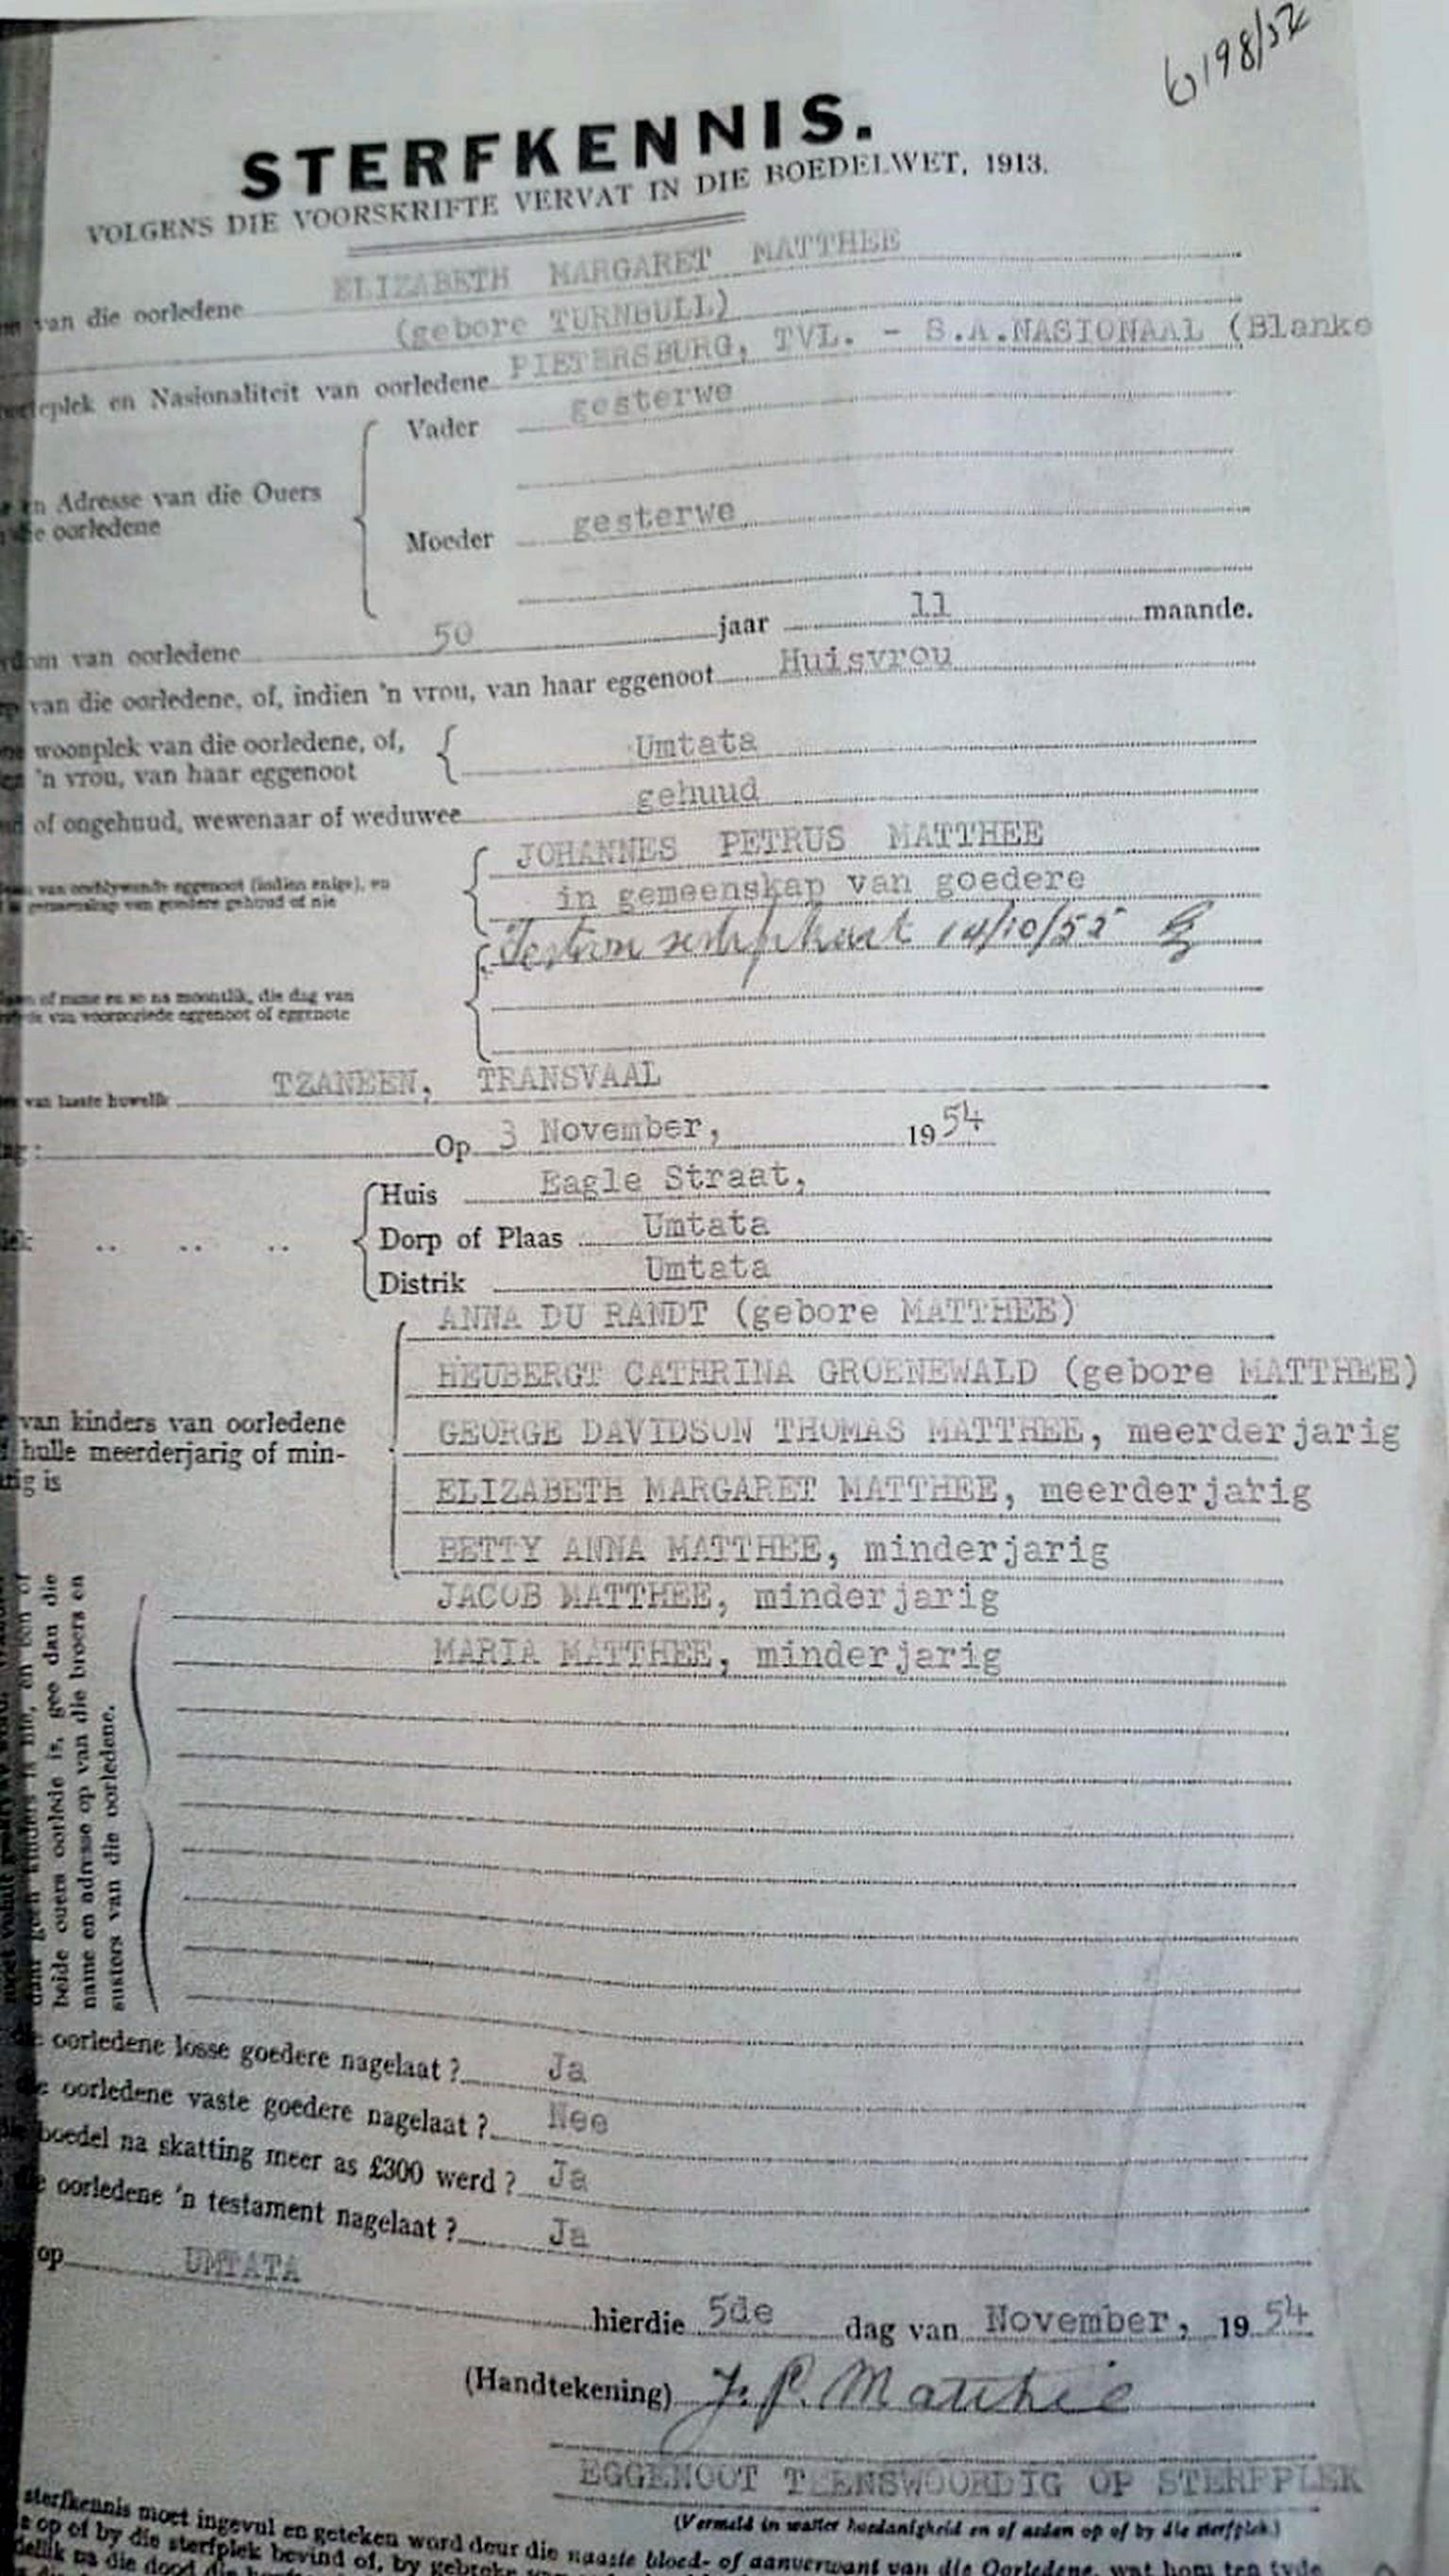 6198/52
STERFKENNIS.
VOLGENS DIE VOORSKRIFTE VERVAT IN DIE BOEDELWET, 1913.
van die oorledene ELIZABETH MARGARET MATTHEE
(gebore TURNBULL)
en Nasionaliteit van oorledene PIETERSBURG, TVL. - S.A.NASIONAAL (Blanke
Vader gesterwe
en Adresse van die Ouers
oorledene
Moeder gesterwe
van oorledene 50 jaar 11 maande.
van die oorledene, of, indien 'n vrou, van haar eggenoot Huisvrou
woonplek van die oorledene, of,
'n vrou, van haar eggenoot
Umtata
of ongehuud, wewenaar of weduwee gehuud
JOHANNES PETRUS MATTHEE
in gemeenskap van goedere
14/10/55
die dag van
eggenoot of eggenote
van laaste huwelik TZANEEN, TRANSVAAL
Op 3 November, 1954
Huis Eagle Straat,
Dorp of Plaas Umtata
Distrik Umtata
ANNA DU RANDT (gebore MATTHEE)
HEUBERGT CATHRINA GROENEWALD (gebore MATTHEE)
van kinders van oorledene
hulle meerderjarig of min-
is
GEORGE DAVIDSON THOMAS MATTHEE, meerderjarig
ELIZABETH MARGARET MATTHEE, meerderjarig
BETTY ANNA MATTHEE, minderjarig
JACOB MATTHEE, minderjarig
MARIA MATTHEE, minderjarig
beide ouers oorlede is, gee dan die
name en adresse op van die broers en
susters van die oorledene.
oorledene losse goedere nagelaat ? Ja
oorledene vaste goedere nagelaat ? Nee
boedel na skatting meer as £300 werd ? Ja
oorledene 'n testament nagelaat ? Ja
op UMTATA
hierdie 5de dag van November, 1954
(Handtekening) J. P. Matthee
EGGENOOT TEENSWOORDIG OP STERFPLEK
(Vermeld in watter hoedanigheid en of anders op of by die sterfplek.)
sterfkennis moet ingevul en geteken word deur die naaste bloed- of aanverwant van die Oorledene, wat hom ten tyde
op of by die sterfplek bevind of, by gebreke
na die dood